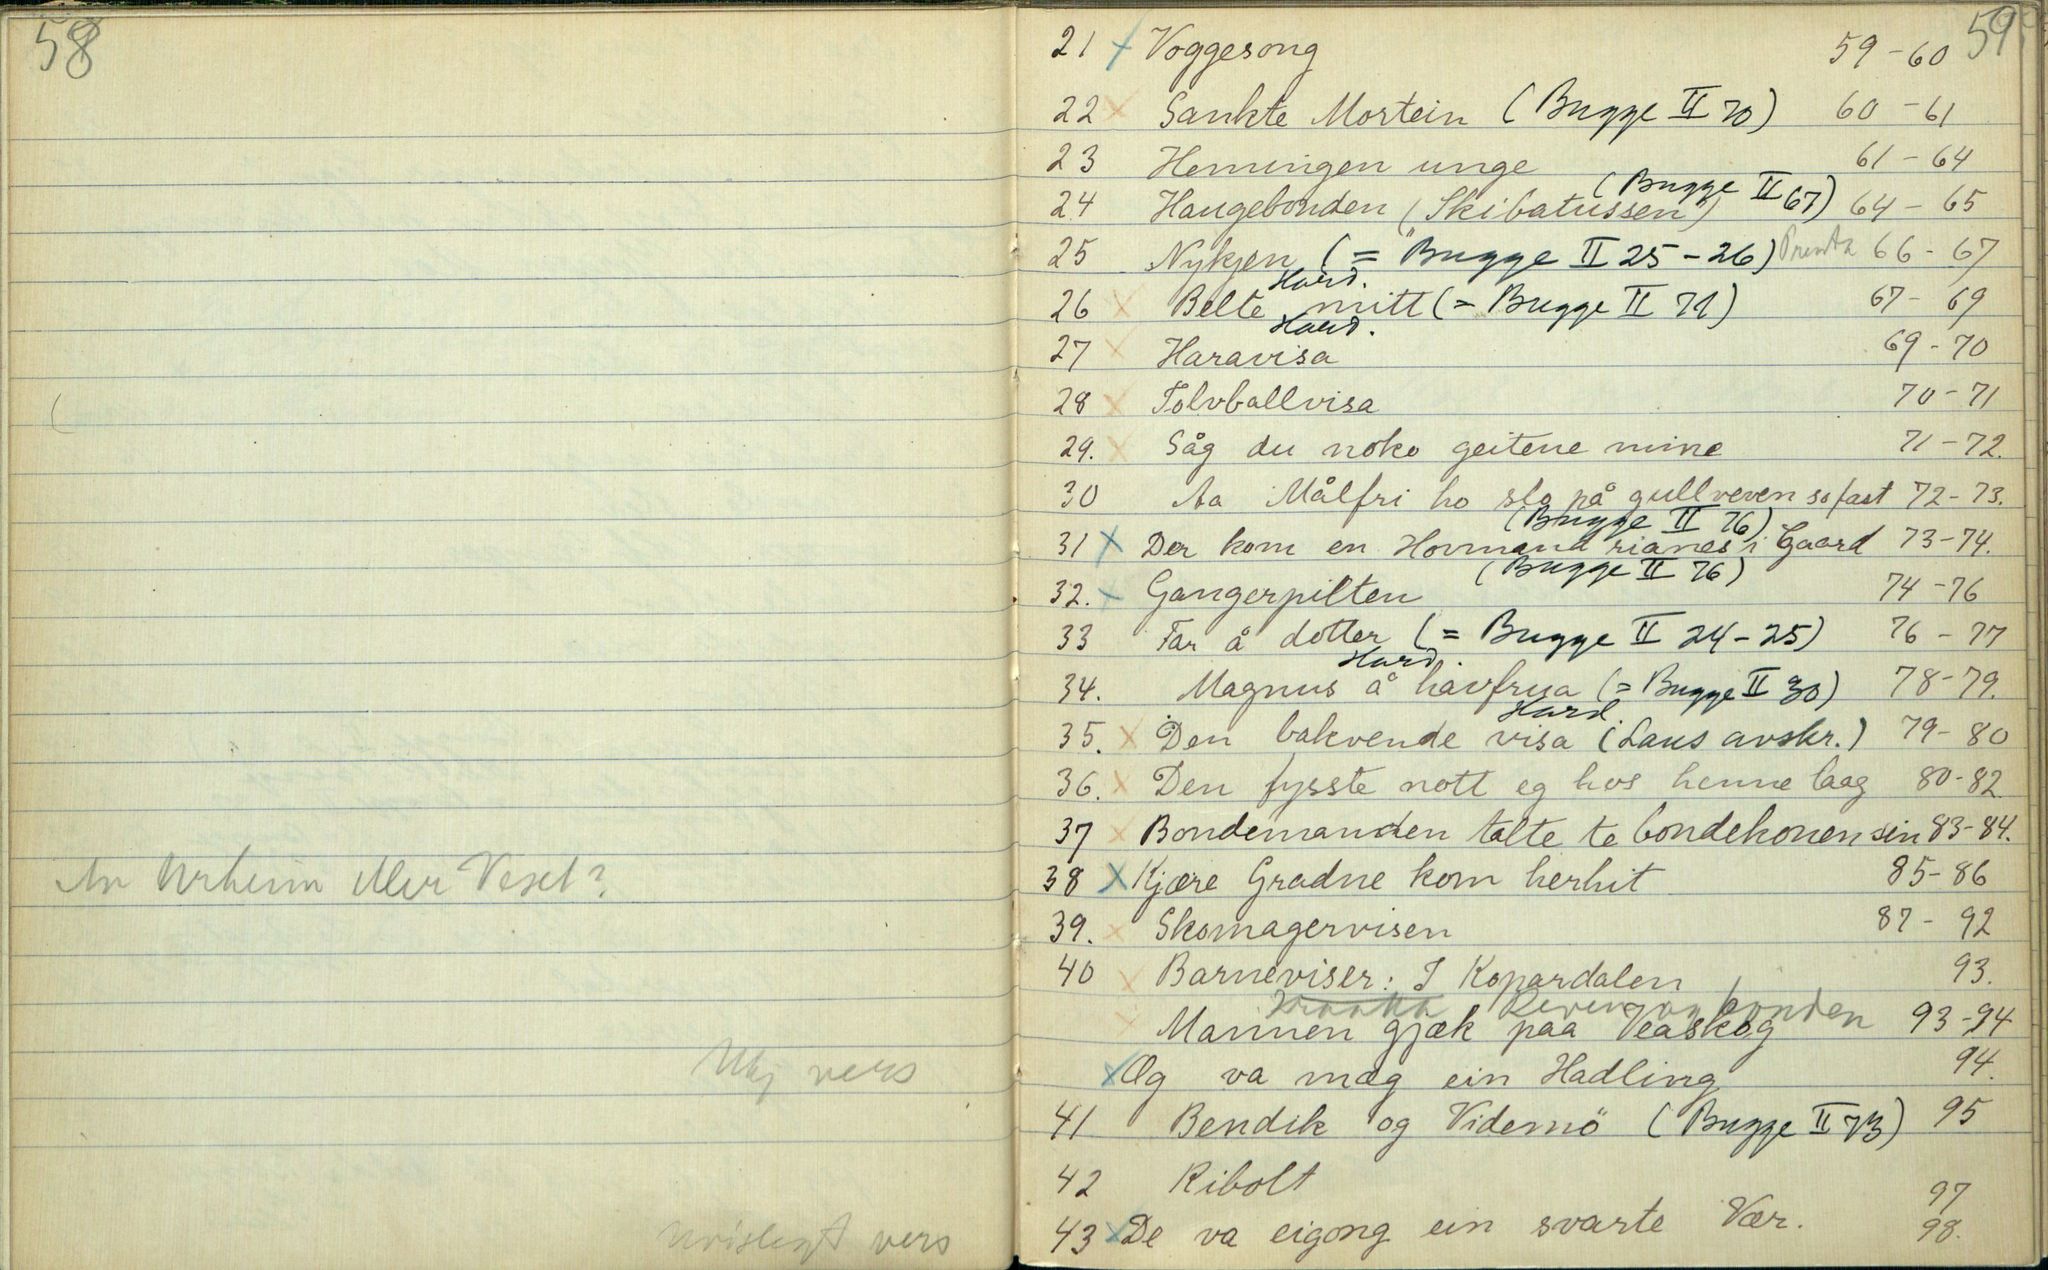 58
eller Veset?
vers
vers
59
21 x Voggesong 59-60
22 x Sankte Mortein (Bugge II 70) 60-61
23 Hemingen unge 61-64
24 Haugebonden (Skibatussen) (Bugge II 67) 64-65
25 Nykjen (= Bugge II 25-26) Prenta 66-67
Hard.
26 x Belte mitt (= Bugge II 71) 67-69
Hard.
27 x Haravisa 69-70
28 x Tolvballvisa 70-71
29. x Såg du noko geitene mine 71-72.
30 Aa Målfri ho slo på gullveven so fast 72-73.
(Bugge II 76)
31 x Der kom en Hovmand rianes i Gaard 73-74.
(Bugge II 76)
32. x Gangerpilten 74-76
33 Far å dotter (= Bugge II 24-25) 76-77
Hard.
34. Magnus å havfrua (= Bugge II 30) 78-79.
Hard.
35. x Den bakvende visa (Laus avskr.) 79-80
36. x Den fysste nott eg hos henne laag 80-82
37 x Bondemanden talte te bondekonen sin 83-84.
38 x Kjære Gradne kom herhit 85-86
39. x Skomagervisen 87-92
40 x Barneviser: I Kopardalen 93.
Reven og bonden
x Mannen gjæk paa Veaskog 93-94
x Og va mag ein Hadling 94.
41 Bendik og Videmö (Bugge II 73) 95
42 Ribolt 97
43 x De va eigong ein svarte Vær. 98.